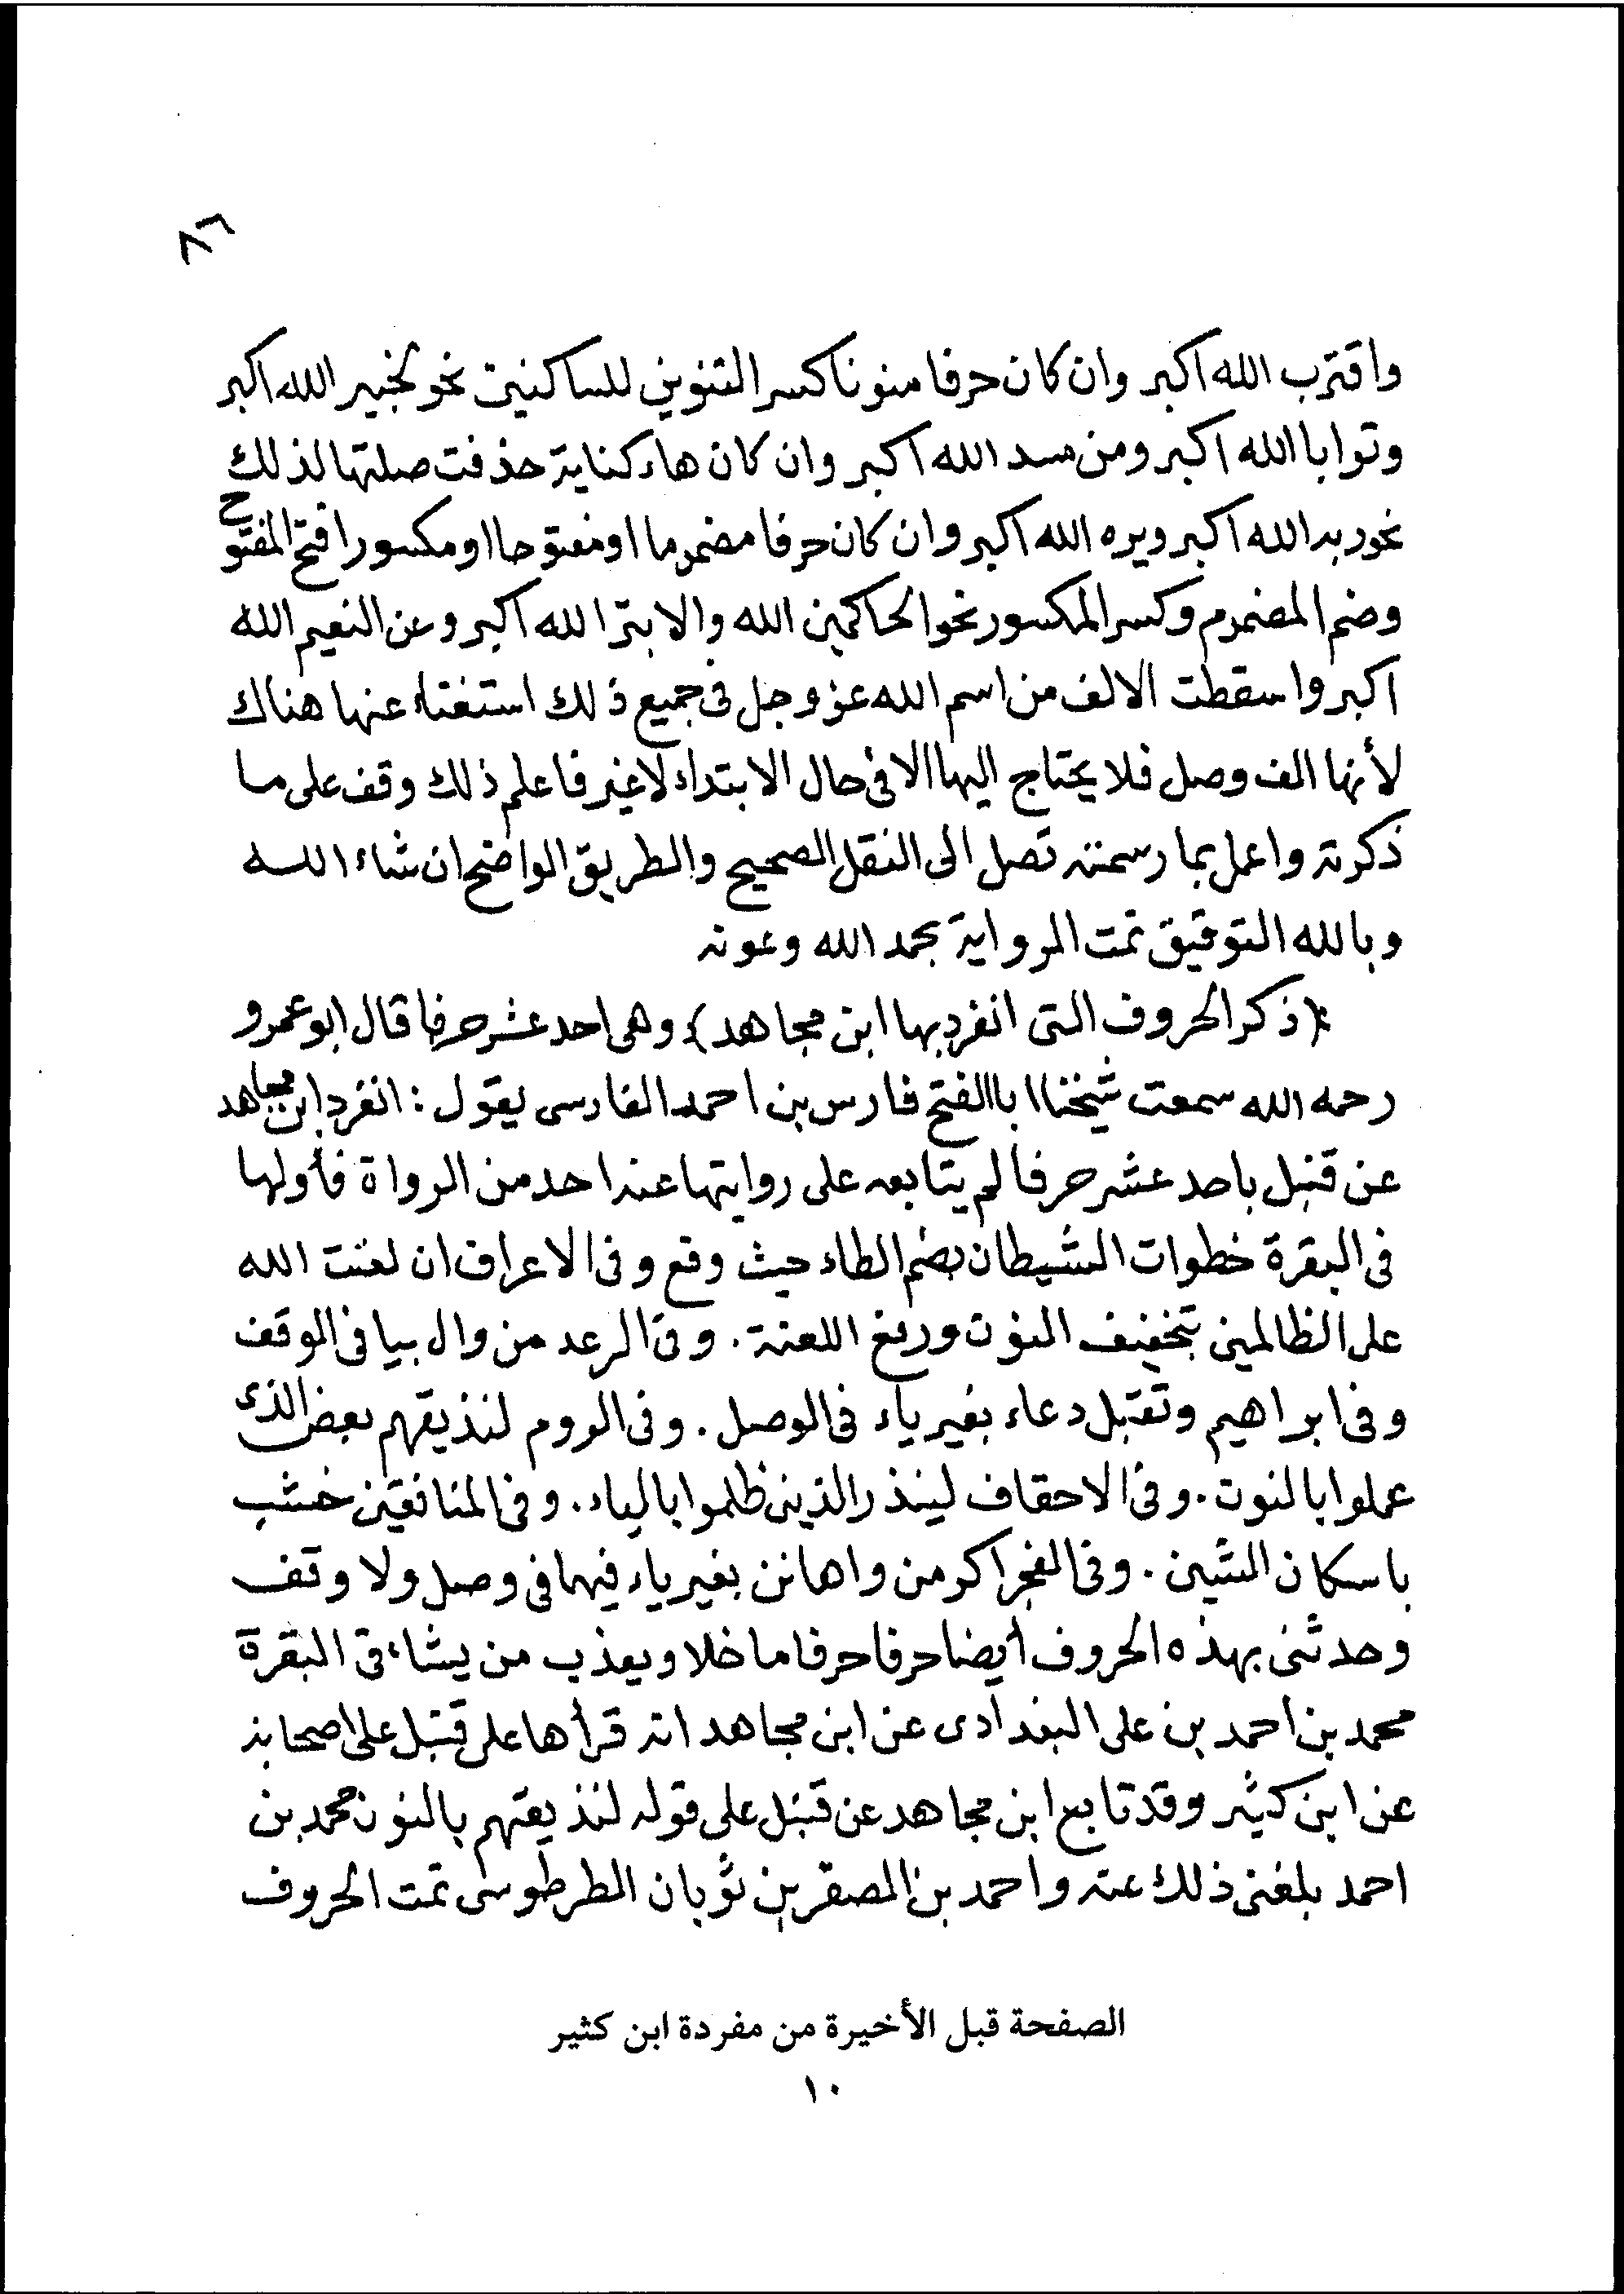 ٨٦
واقترب الله اكبر وان كان حرفا منونا كسر التنوين للساكنين نحو لخبير الله اكبر
وتوابا الله اكبر ومن مسد الله اكبر وان كان هاء كناية حذفت صلتها لذلك
نحو ربه الله اكبر ويره الله اكبر وان كان حرفا مضموما او مفتوحا او مكسورا فتح المفتوح
وضم المضموم وكسر المكسور نحو الحاكمين الله والابتر الله اكبر وعن النعيم الله
اكبر واسقطت الالف من اسم الله عز وجل في جميع ذلك استغناء عنها هناك
لأنها الف وصل فلا يحتاج اليها الا في حال الابتداء لا غير فاعلم ذلك وقف على ما
ذكرته واعمل بما رسمته تصل الى النقل الصحيح والطريق الواضح ان شاء الله
وبالله التوفيق تمت الرواية بحمد الله وعونه
(ذكر الحروف التى انفرد بها ابن مجاهد) وهى احد عشر حرفا قال ابو عمرو
رحمه الله سمعت شيخنا ابا الفتح فارس بن احمد الفارسى يقول : انفرد ابن مجاهد
عن قنبل باحد عشر حرفا لم يتابعه على روايتها عنه احد من الرواة فأولها
فى البقرة خطوات الشيطان بضم الطاء حيث وقع وفى الاعراف ان لعنت الله
على الظالمين بتخفيف النون ورفع اللعنة . وفى الرعد من وال بيا فى الوقف
وفى ابراهيم وتقبل دعاء بغير ياء فى الوصل . وفى الروم لنذيقهم بعض الذى
عملوا بالنون . وفى الاحقاف لينذر الذين ظلموا بالياء . وفى المنافقين خشب
باسكان الشين . وفى الفجر اكرمن واهانن بغير ياء فيهما فى وصل ولا وقف
وحدثنى بهذه الحروف أيضا حرفا حرفا ما خلا ويعذب من يشاء فى البقرة
محمد بن احمد بن على البغدادى عن ابن مجاهد انه قرأها على قنبل على اصحابه
عن ابن كثير وقد تابع ابن مجاهد عن قنبل على قوله لنذيقهم بالنون محمد بن
احمد بلغنى ذلك عنه واحمد بن الصقر بن ثوبان الطرطوسى تمت الحروف
الصفحة قبل الأخيرة من مفردة ابن كثير
١٠